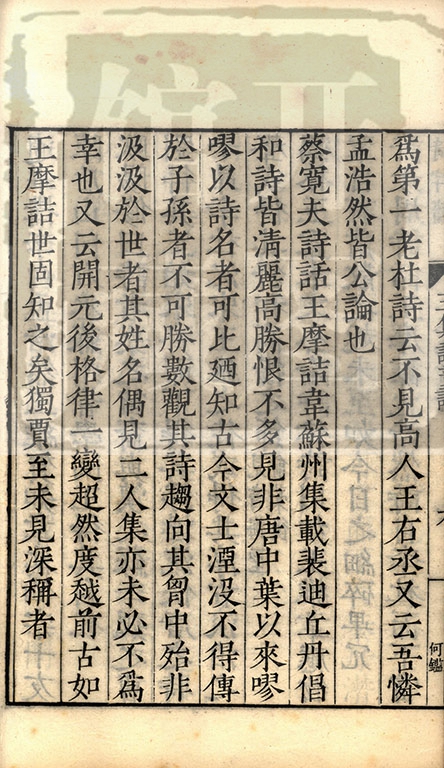 爲第一老杜詩云不見高人王右丞又云吾憐
孟浩然皆公論也
蔡寬夫詩話王摩詰韋蘇州集載裴迪丘丹倡
和詩皆清麗高勝恨不多見非唐中葉以來嘐
嘐以詩名者可比廼知古今文士湮没不得傳
於子孫者不可勝數觀其詩趨向其胷中殆非
汲汲於世者其姓名偶見二人集亦未必不爲
幸也又云開元後格律一變超然度越前古如
王摩詰世固知之矣獨賈至未見深稱者
何鑑